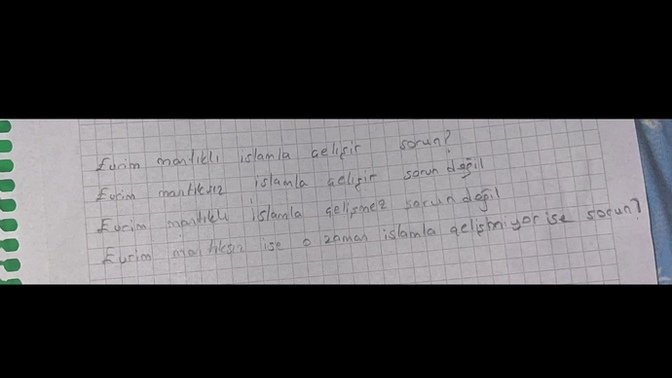 Evrim mantıklı islamla gelişir sorun?
Evrim mantıksız islamla gelişir sorun değil
Evrim mantıklı islamla gelişmez sorun değil
Evrim mantıksız ise o zaman islamla gelişmiyor ise sorun?